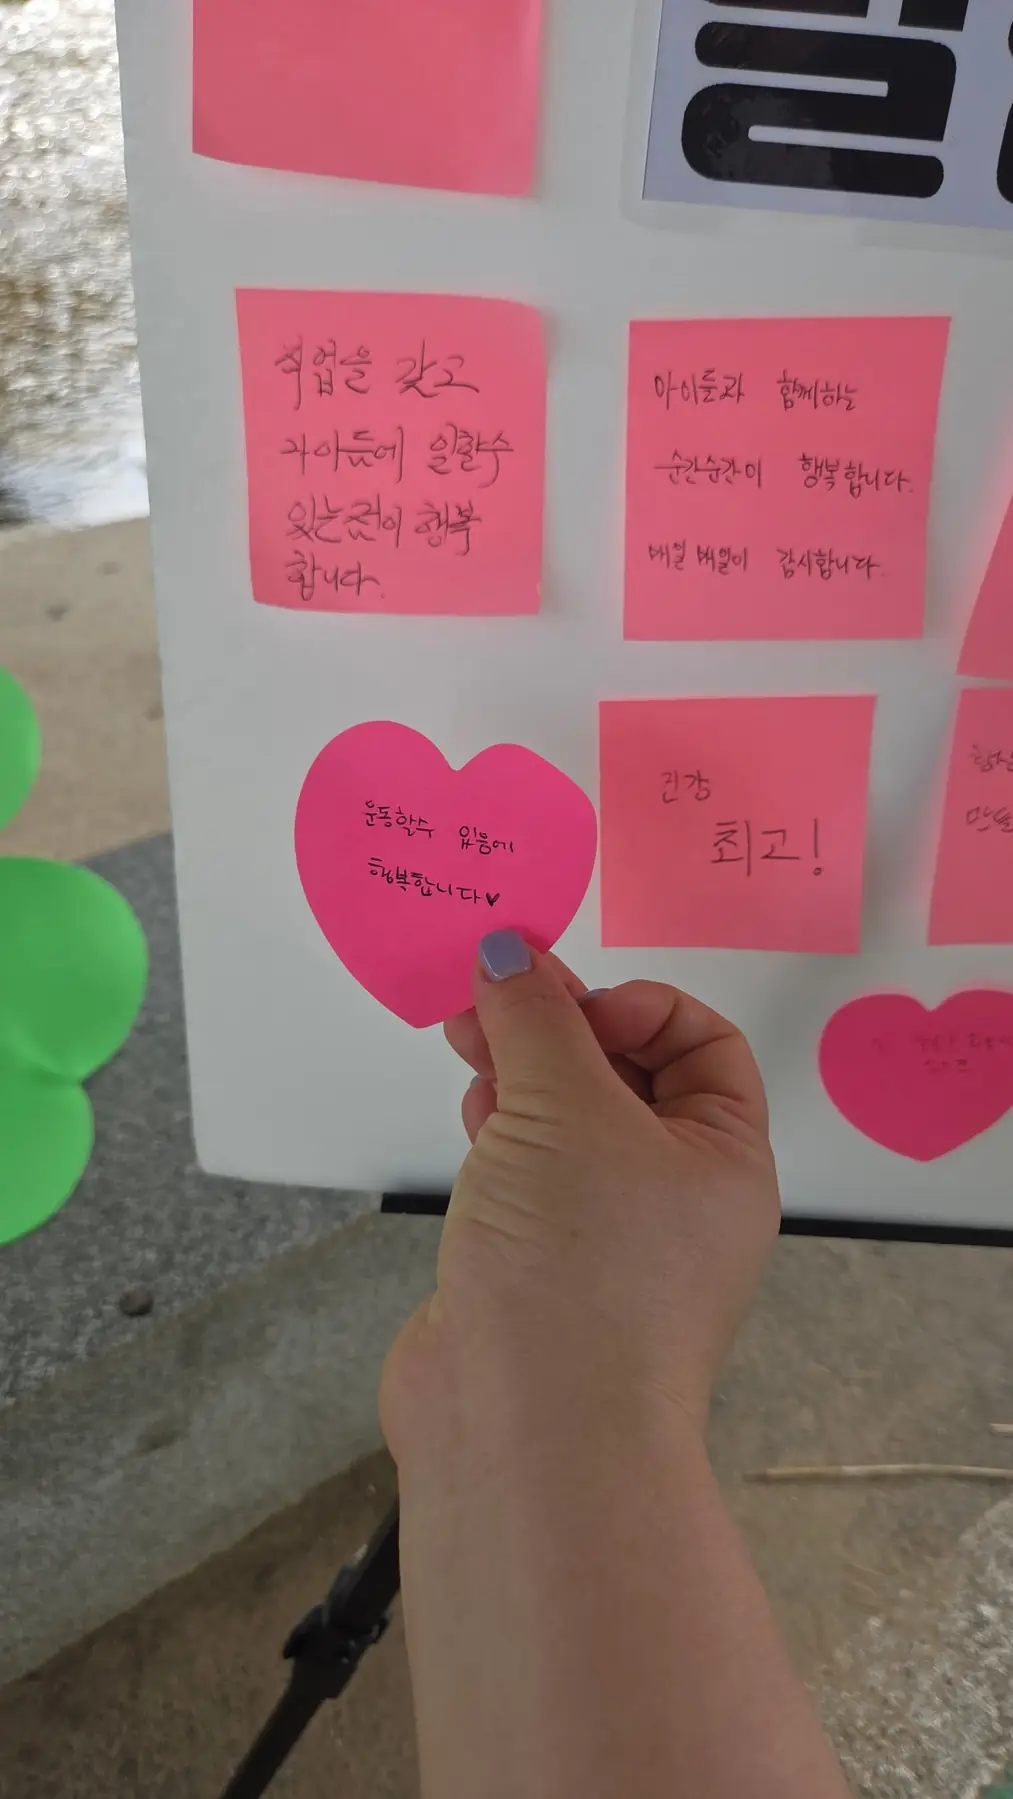 직업을 갖고
일할수
있는것이 행복
합니다.
아이들과 함께하는
순간순간이 행복합니다.
매일 매일이 감사합니다.
운동할수 있음에
행복합니다♥
건강
최고!